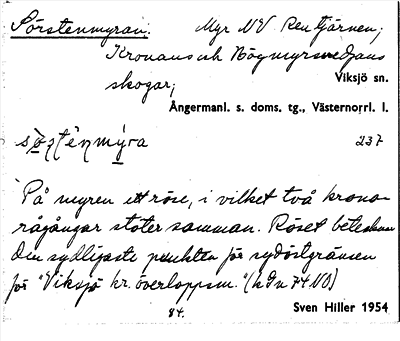 Sörstenmyran. Myr NV Rentjärnen;
Kronans och Högmyrsmedjans
skogar; Viksjö sn.
Ångermanl. s. doms. tg., Västernorrl. l.
sö̱ʂtènmý̱ra 237
På myren ett röse, i vilket två krono-
rågångar stöter samman. Röset betecknar
den sydligaste punkten för sydöstgränsen
för "Viksjö kr. överloppsm." (LSn 74 NO)
84. Sven Hiller 1954